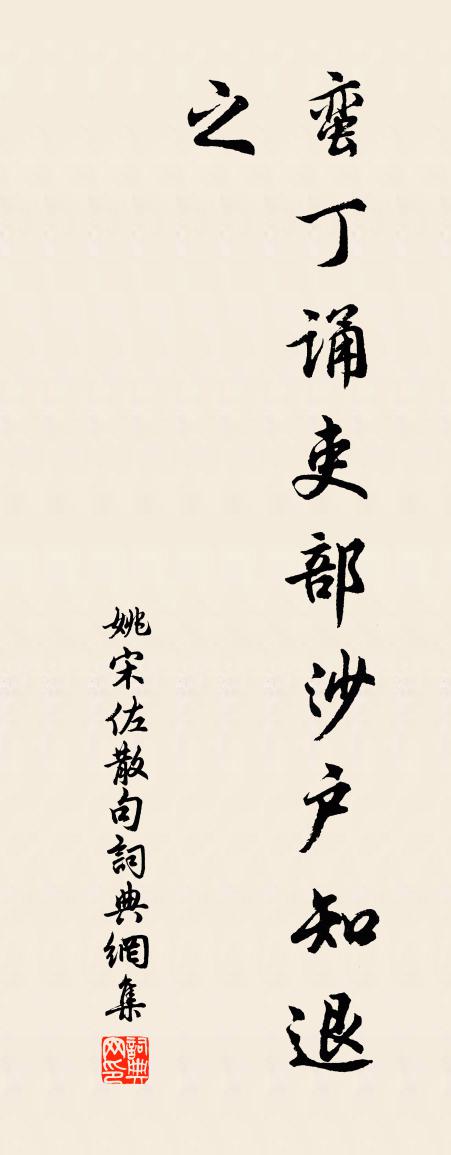 蛮丁诵吏部沙户知退
之
姚宋佐散句詞典網集
詞典
网印